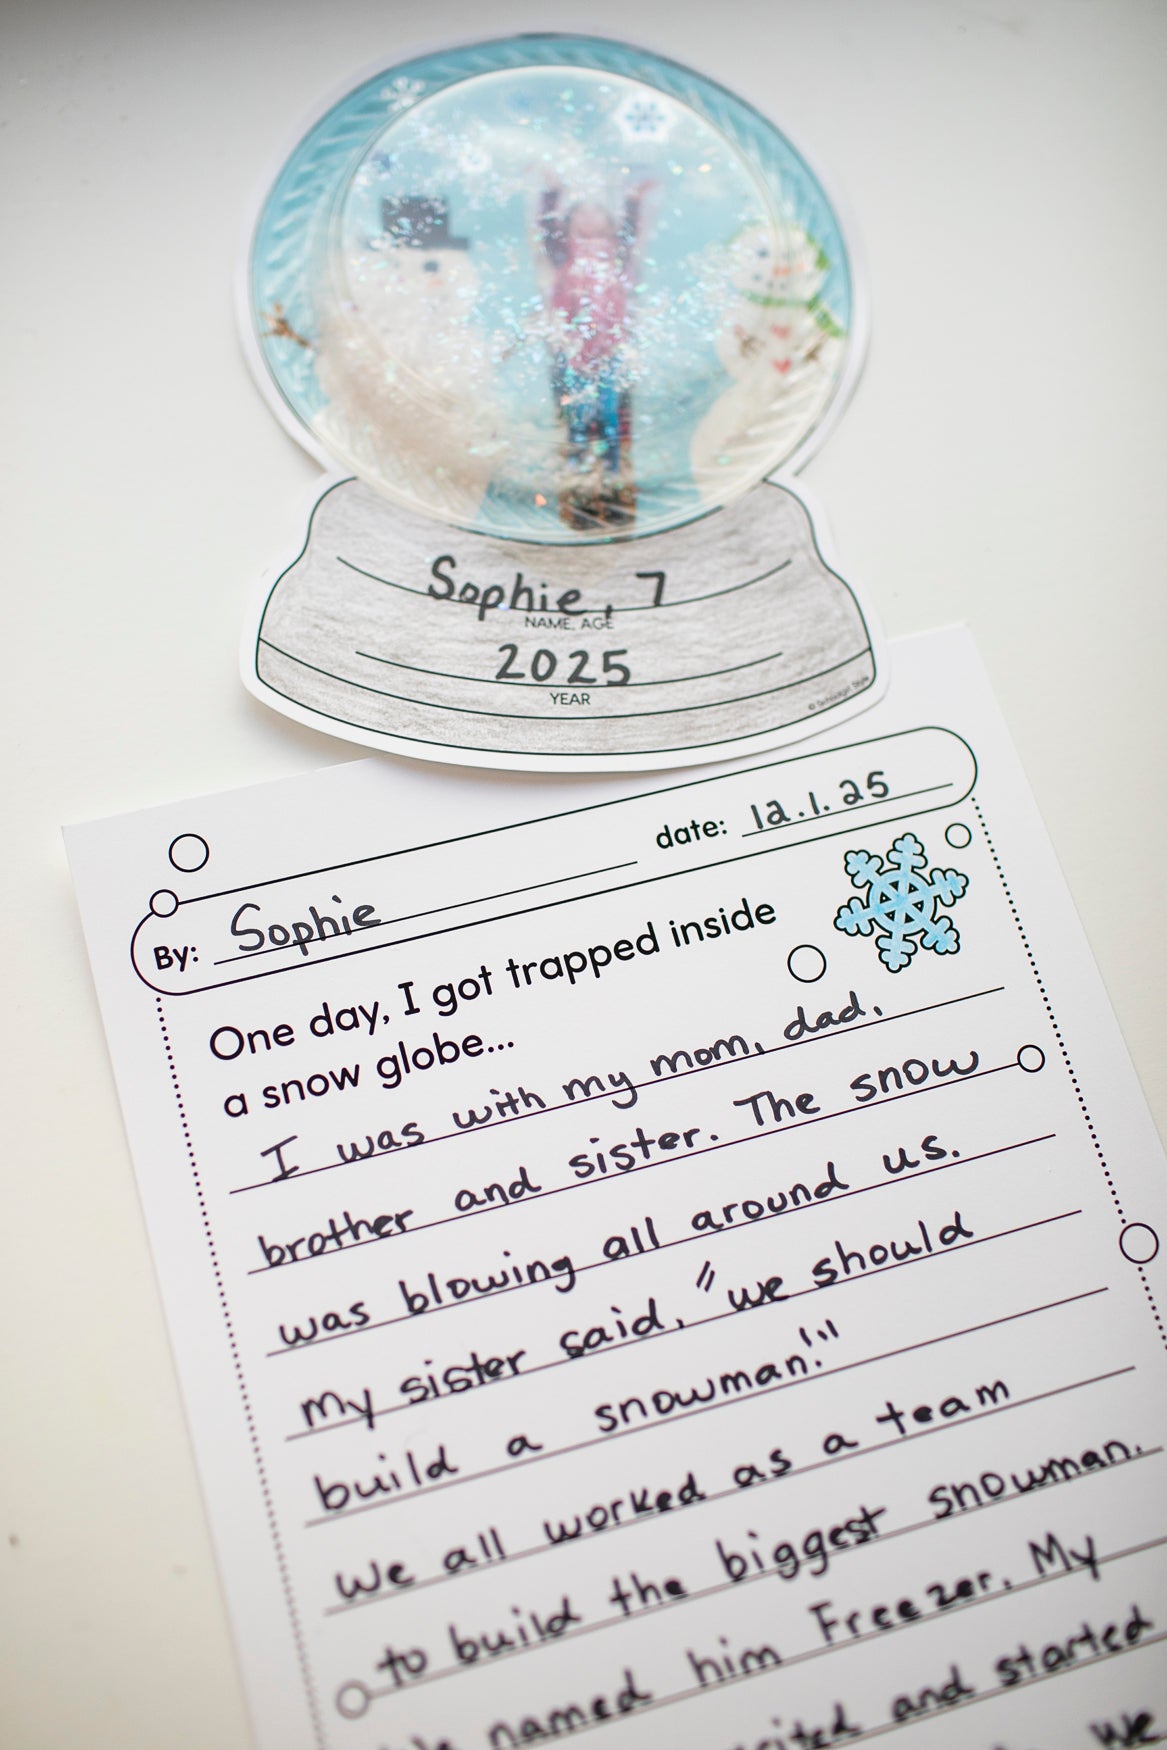 Sophie, 7
NAME, AGE
2025
YEAR
© Schoolgirl Style
date: 12.1.25
By: Sophie
One day, I got trapped inside
a snow globe...
I was with my mom, dad,
brother and sister. The snow
was blowing all around us.
my sister said, "we should
build a snowman!"
we all worked as a team
to build the biggest snowman.
named him Freezer. My
and started
we